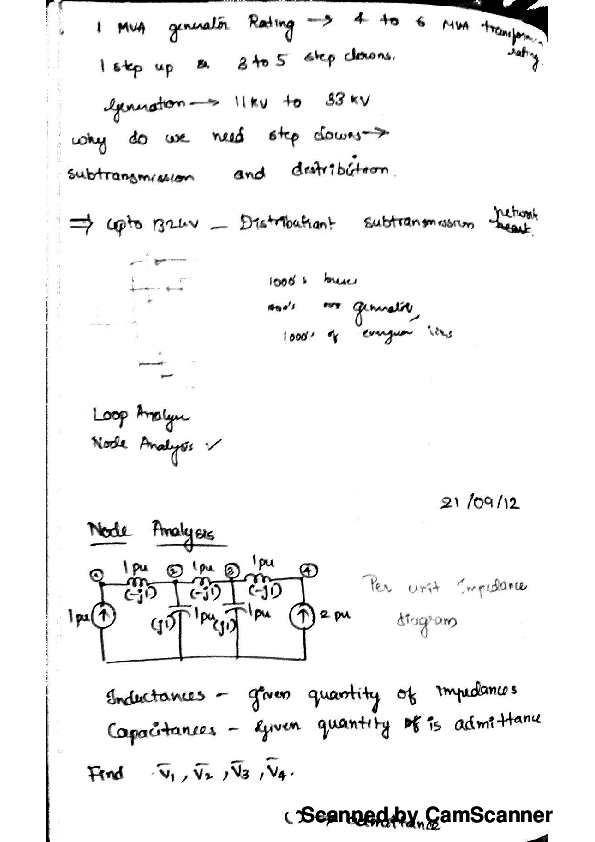 1 MVA generator Rating → 4 to 6 MVA transform. rating
1 step up & 3 to 5 step downs.
Generation → 11 KV to 33 KV
why do we need step downs →
subtransmission and distribution.
⇒ upto 132KV – Distribution subtransmission network
1000's buses
generator,
1000's of lines
Loop
Node Analysis ✓
21/09/12
Node Analysis
1 pu 1 pu 1 pu
① ② ③ ④
(-j1) (-j1) (-j1)
1 pu 1 pu 1 pu 2 pu
(j1) (j1)
Per unit impedance
diagram
Inductances – given quantity of impedances
Capacitances – Given quantity is admittance
Find V̄1, V̄2, V̄3, V̄4.
Scanned by CamScanner
admittance